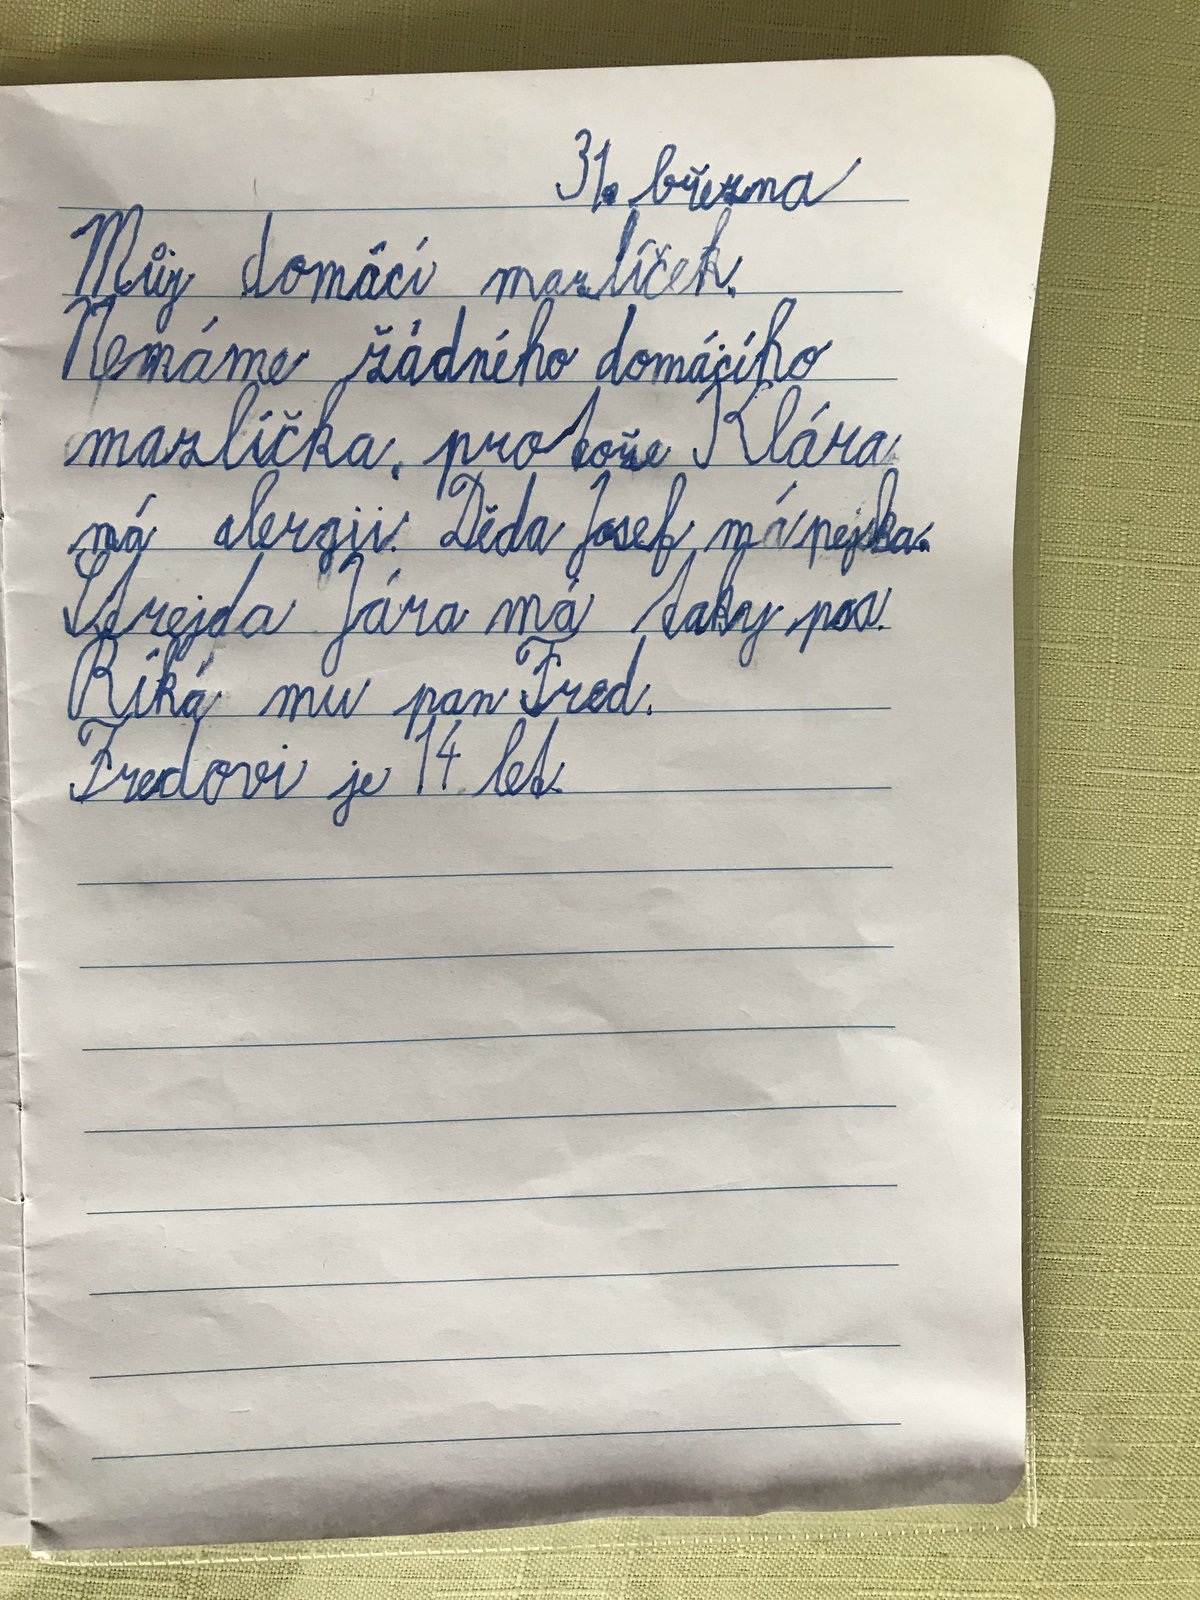 31. března
Můj domácí mazlíček.
Nemáme žádného domácího
mazlíčka, protože Klára
má alergii. Děda Josef má pejska.
Strejda Jára má taky psa.
Říká mu pan Fred.
Fredovi je 14 let.